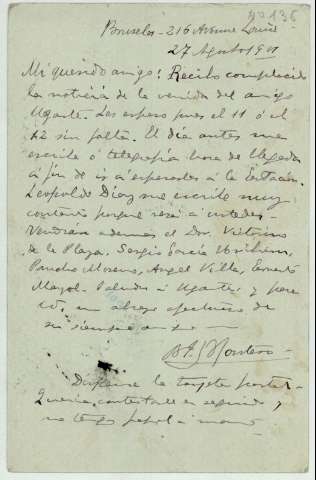 Nº 136
Bruselas - 216 Avenue Louise
27 Agosto 1901
Mi querido amigo: Recibo complacido
la noticia de la venida del amigo
Ugarte. Los espero pues el 11 ó el
12 sin falta. El dia antes me
escribe ó telegrafía hora de llegada
á fin de ir á esperarles á la Estación.
Leopoldo Díaz me escribe muy
contento porque verá á ustedes.
Vendrán ademas el Dr. Victorino
de la Plaza, Sergio García Uriburu,
Pancho Moreno, Angel Villa, Ernesto
Mayol. Saludos á Ugarte y para
un abrazo afectuoso de
su siempre
Montero
Dispense la tarjeta postal.
Quería contestarle en seguida,
no tengo papel á mano